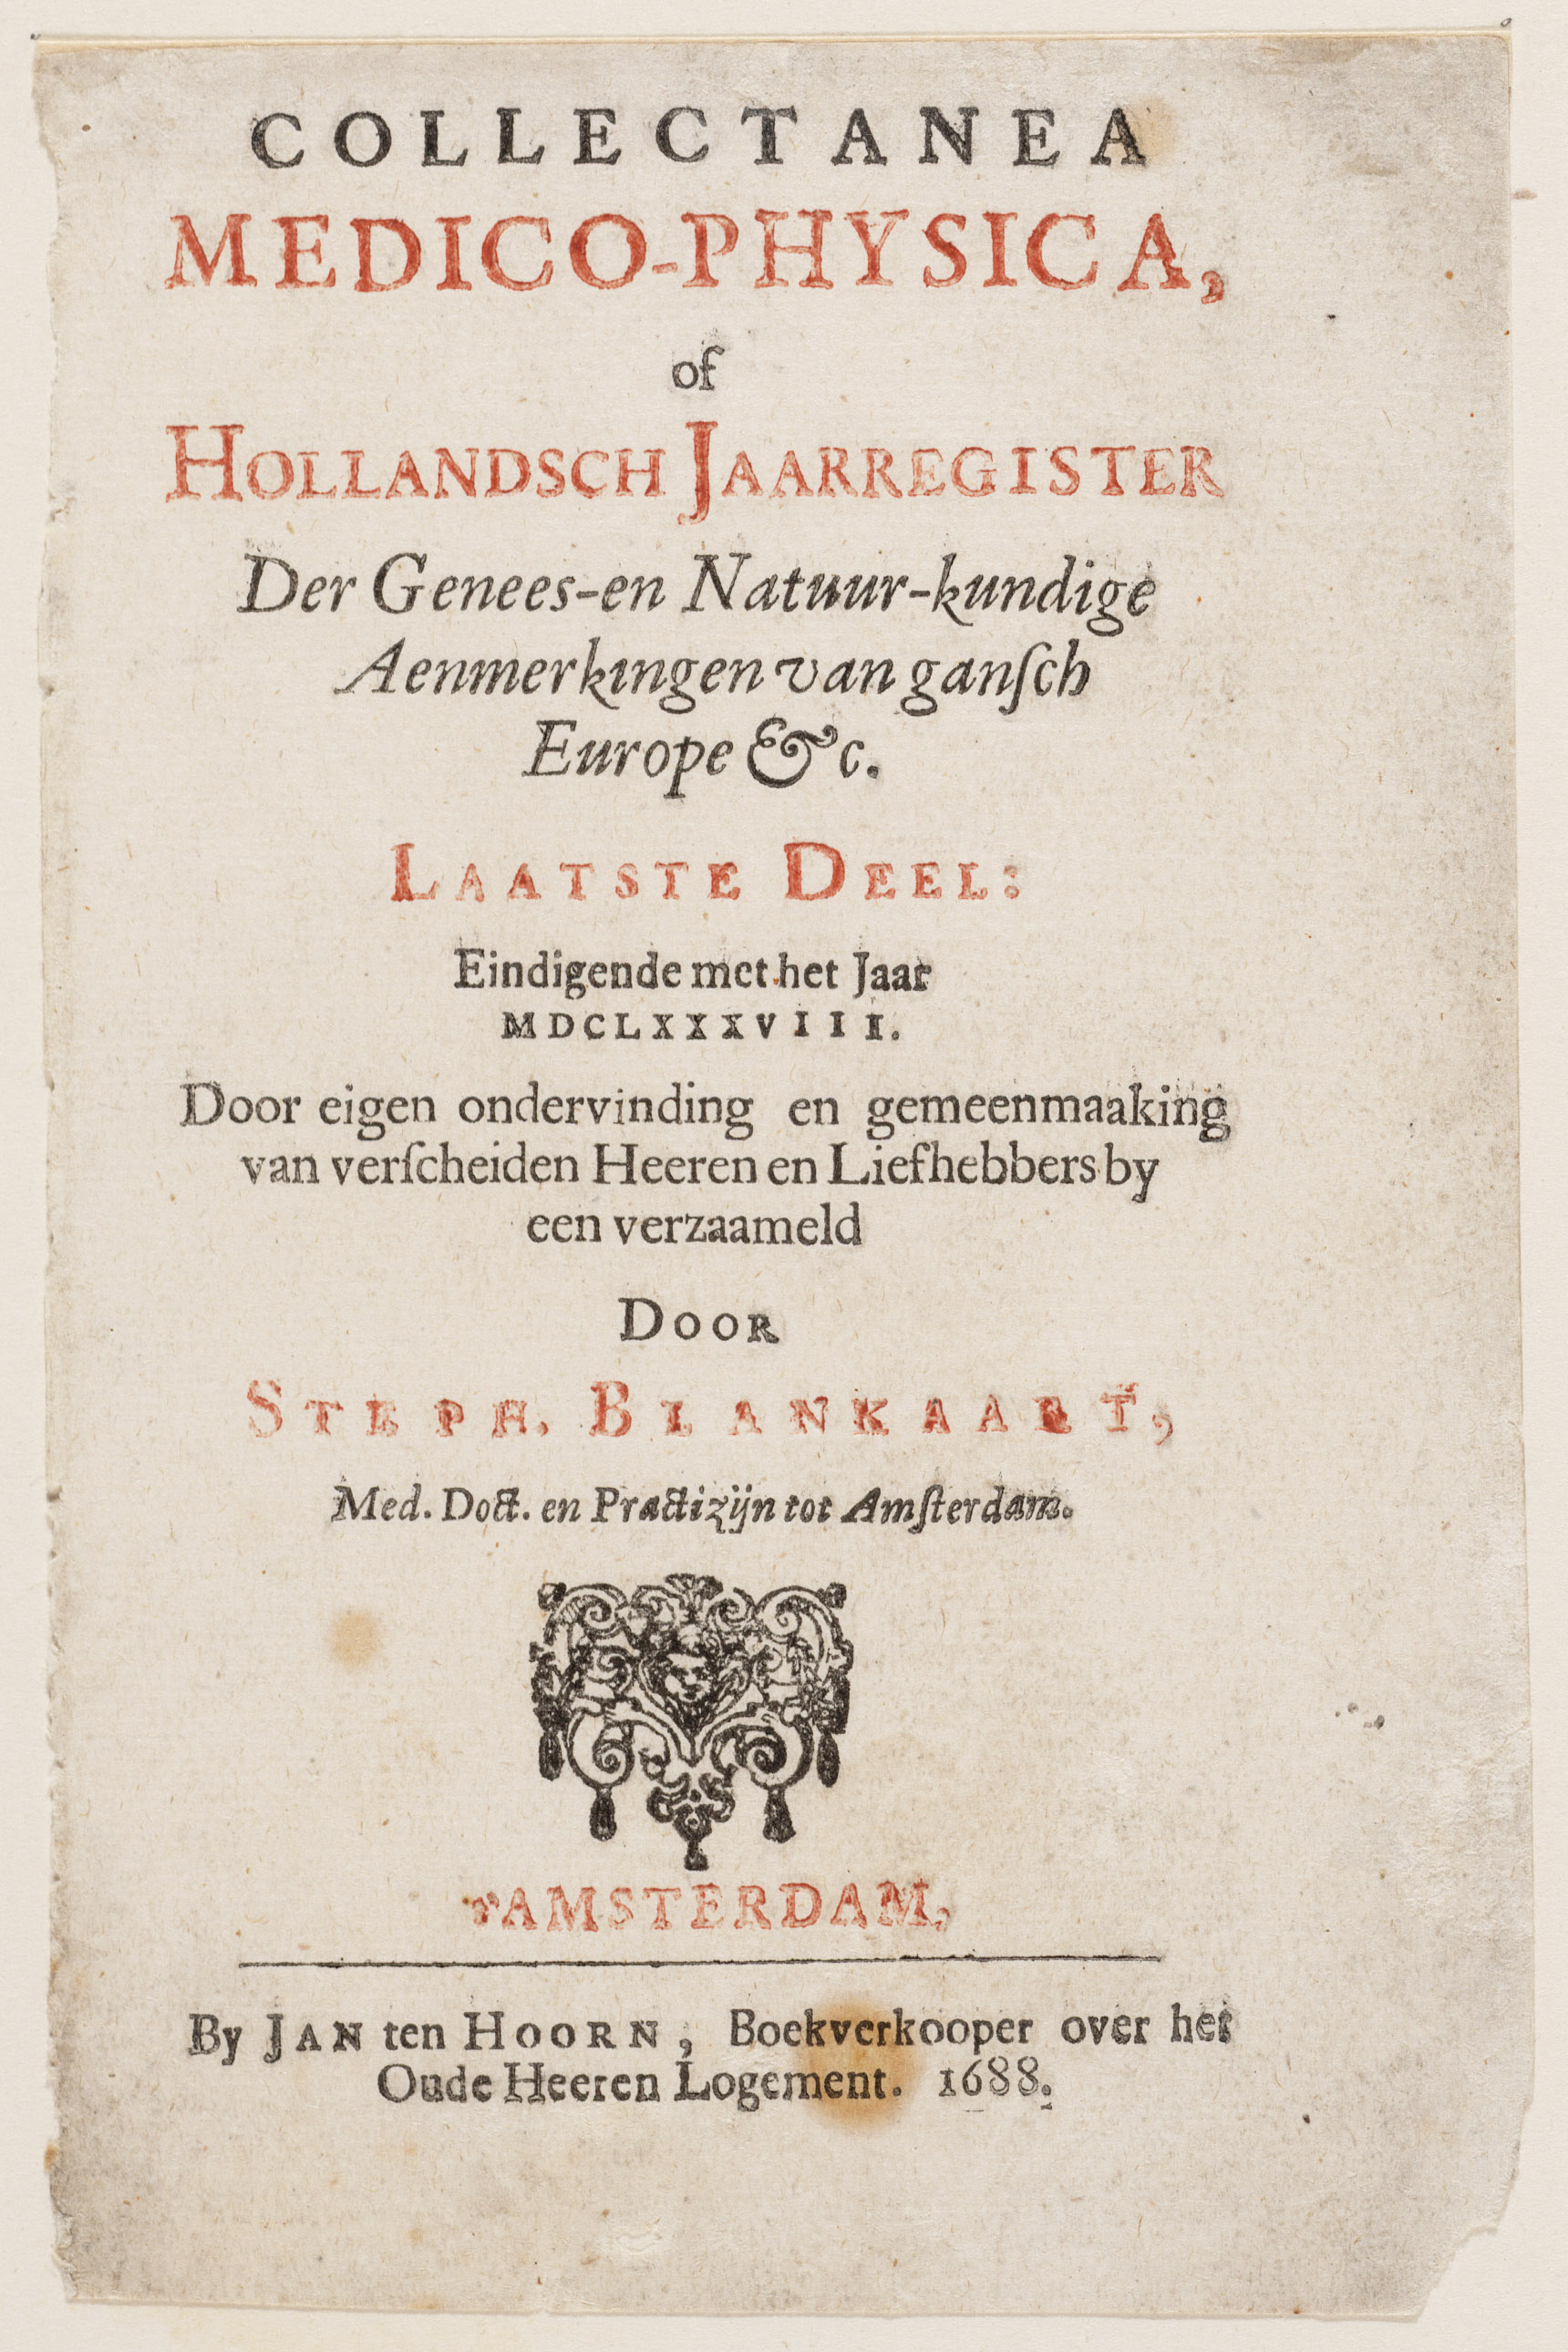 COLLECTANEA
MEDICO-PHYSICA,
of
HOLLANDSCH JAARREGISTER
Der Genees-en Natuur-kundige
Aenmerkingen van ganſch
Europe &c.
LAATSTE DEEL:
Eindigende met het Jaar
MDCLXXXVIII.
Door eigen ondervinding en gemeenmaaking
van verſcheiden Heeren en Liefhebbers by
een verzaameld
DOOR
STEPH. BLANKAART,
Med. Doct. en Practizijn tot Amſterdam.
t'AMSTERDAM,
By JAN ten HOORN, Boekverkooper over het
Oude Heeren Logement. 1688.